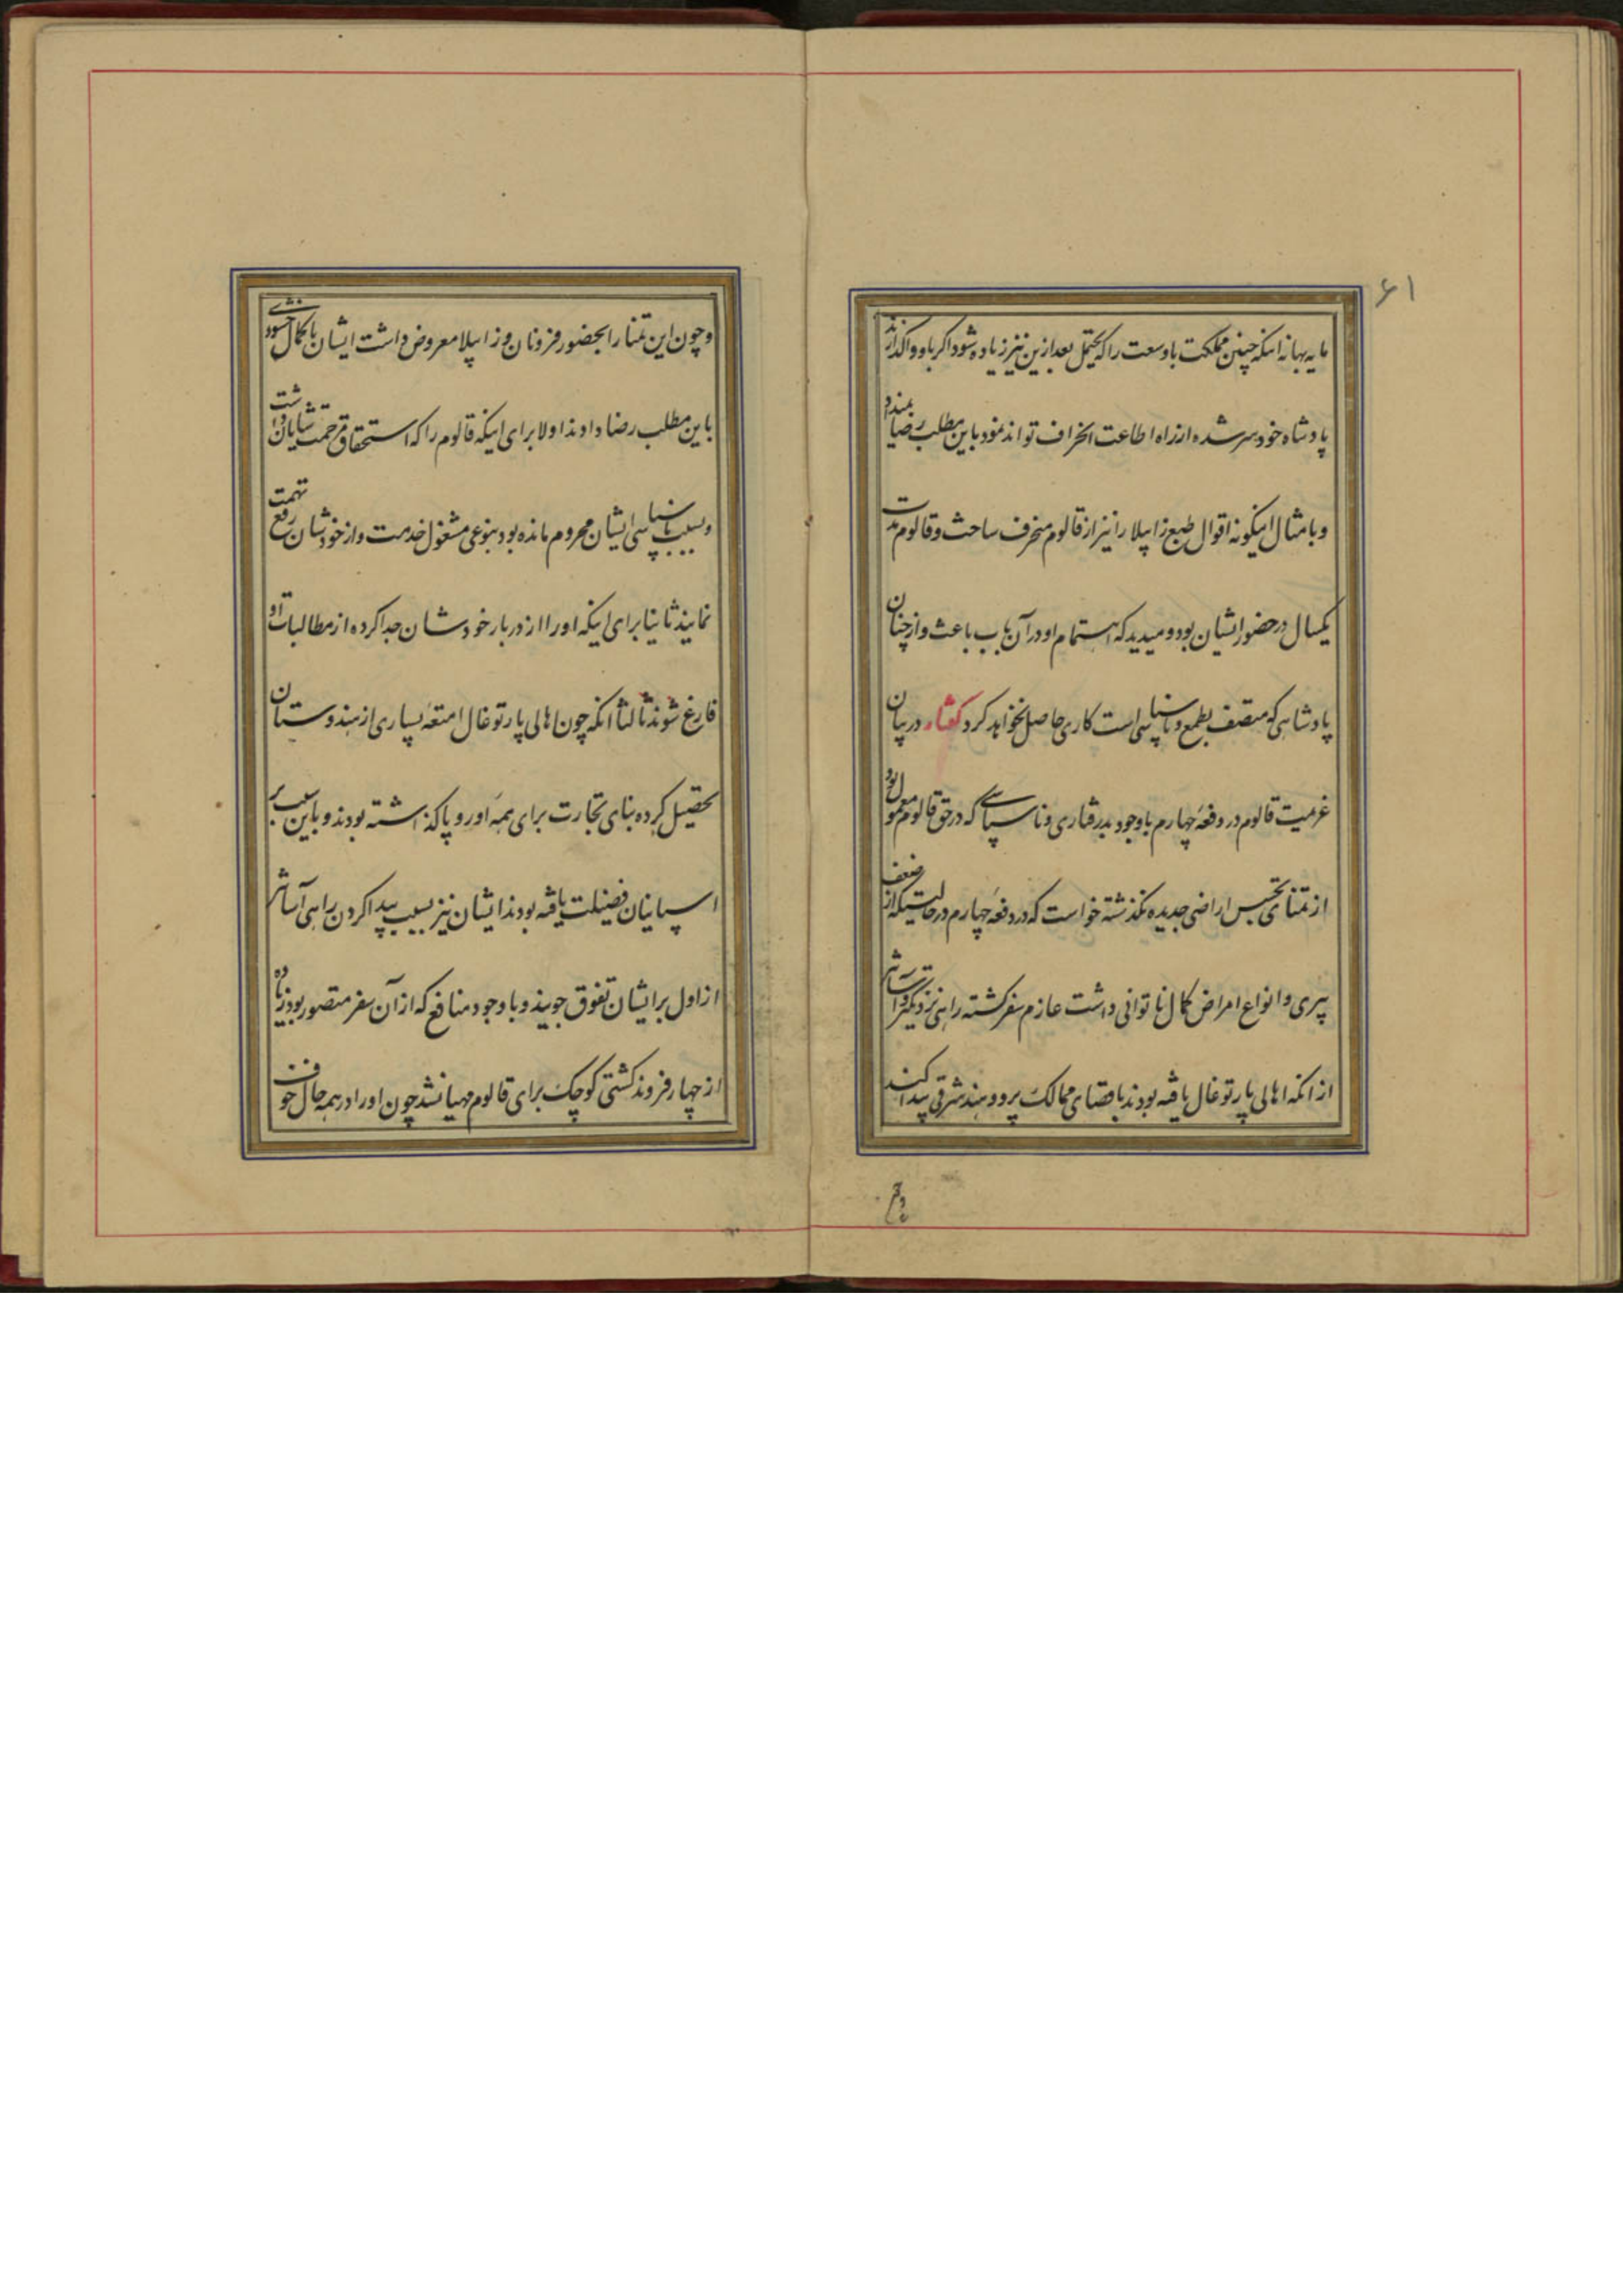 ۶۱
ما به بهانه اینکه چنین مملکت باوسعت را که یحتمل بعد ازین نیز زیاده شود اگر باو واگذارند
پادشاه خودسر شده از راه اطاعت انحراف تواند نمود باین مطلب رضا نمیداد
و بامثال اینگونه اقوال طبع زابیلا را نیز از قالوم منحرف ساخت و قالوم مدت
یکسال در حضور ایشان بود و میدید که اهتمام او در آن باب باعث و از چنان
پادشاهی که متصف بطمع و ناسپاسی است کاری حاصل نخواهد کرد گفتار در بیان
عزمیت قالوم در دفعهٔ چهارم باوجود بدرفتاری و ناسپاسی که در حق قالوم معمول بود
از تمنای تجسس اراضی جدیده نگذشته خواست که در دفعهٔ چهارم در حالتیکه از ضعف
پیری و انواع امراض کمال ناتوانی داشت عازم سفر گشته راهی نزدیکتر و آسانتر
از آنکه اهالی پارتوغال یافته بودند باقصای ممالک پرو و هند شرقی پیدا کند
و چون این تمنا را بحضور فردنان و زابیلا معروض داشت ایشان با کمال خوشنودی
باین مطلب رضا دادند اولا برای اینکه قالوم را که استحقاق مرحمت شایان داشت
و بسبب ناسپاسی ایشان محروم مانده بود بنوعی مشغول خدمت و از خودشان رفع تهمت
نمایند ثانیا برای اینکه او را از دربار خودشان جدا کرده از مطالبات او
فارغ شوند ثالثا آنکه چون اهالی پارتوغال امتعهٔ بسیاری از هندوستان
تحصیل کرده بنای تجارت برای همهٔ اوروپا گذاشته بودند و باین سبب بر
اسپانیان فضیلت یافته بودند ایشان نیز بسبب پیدا کردن راهی آسانتر
از اول بر ایشان تفوق جویند و باوجود منافع که از آن سفر متصور بود زیاده
از چهار فروند کشتی کوچک برای قالوم مهیا نشد چون او را در همه حال خوف